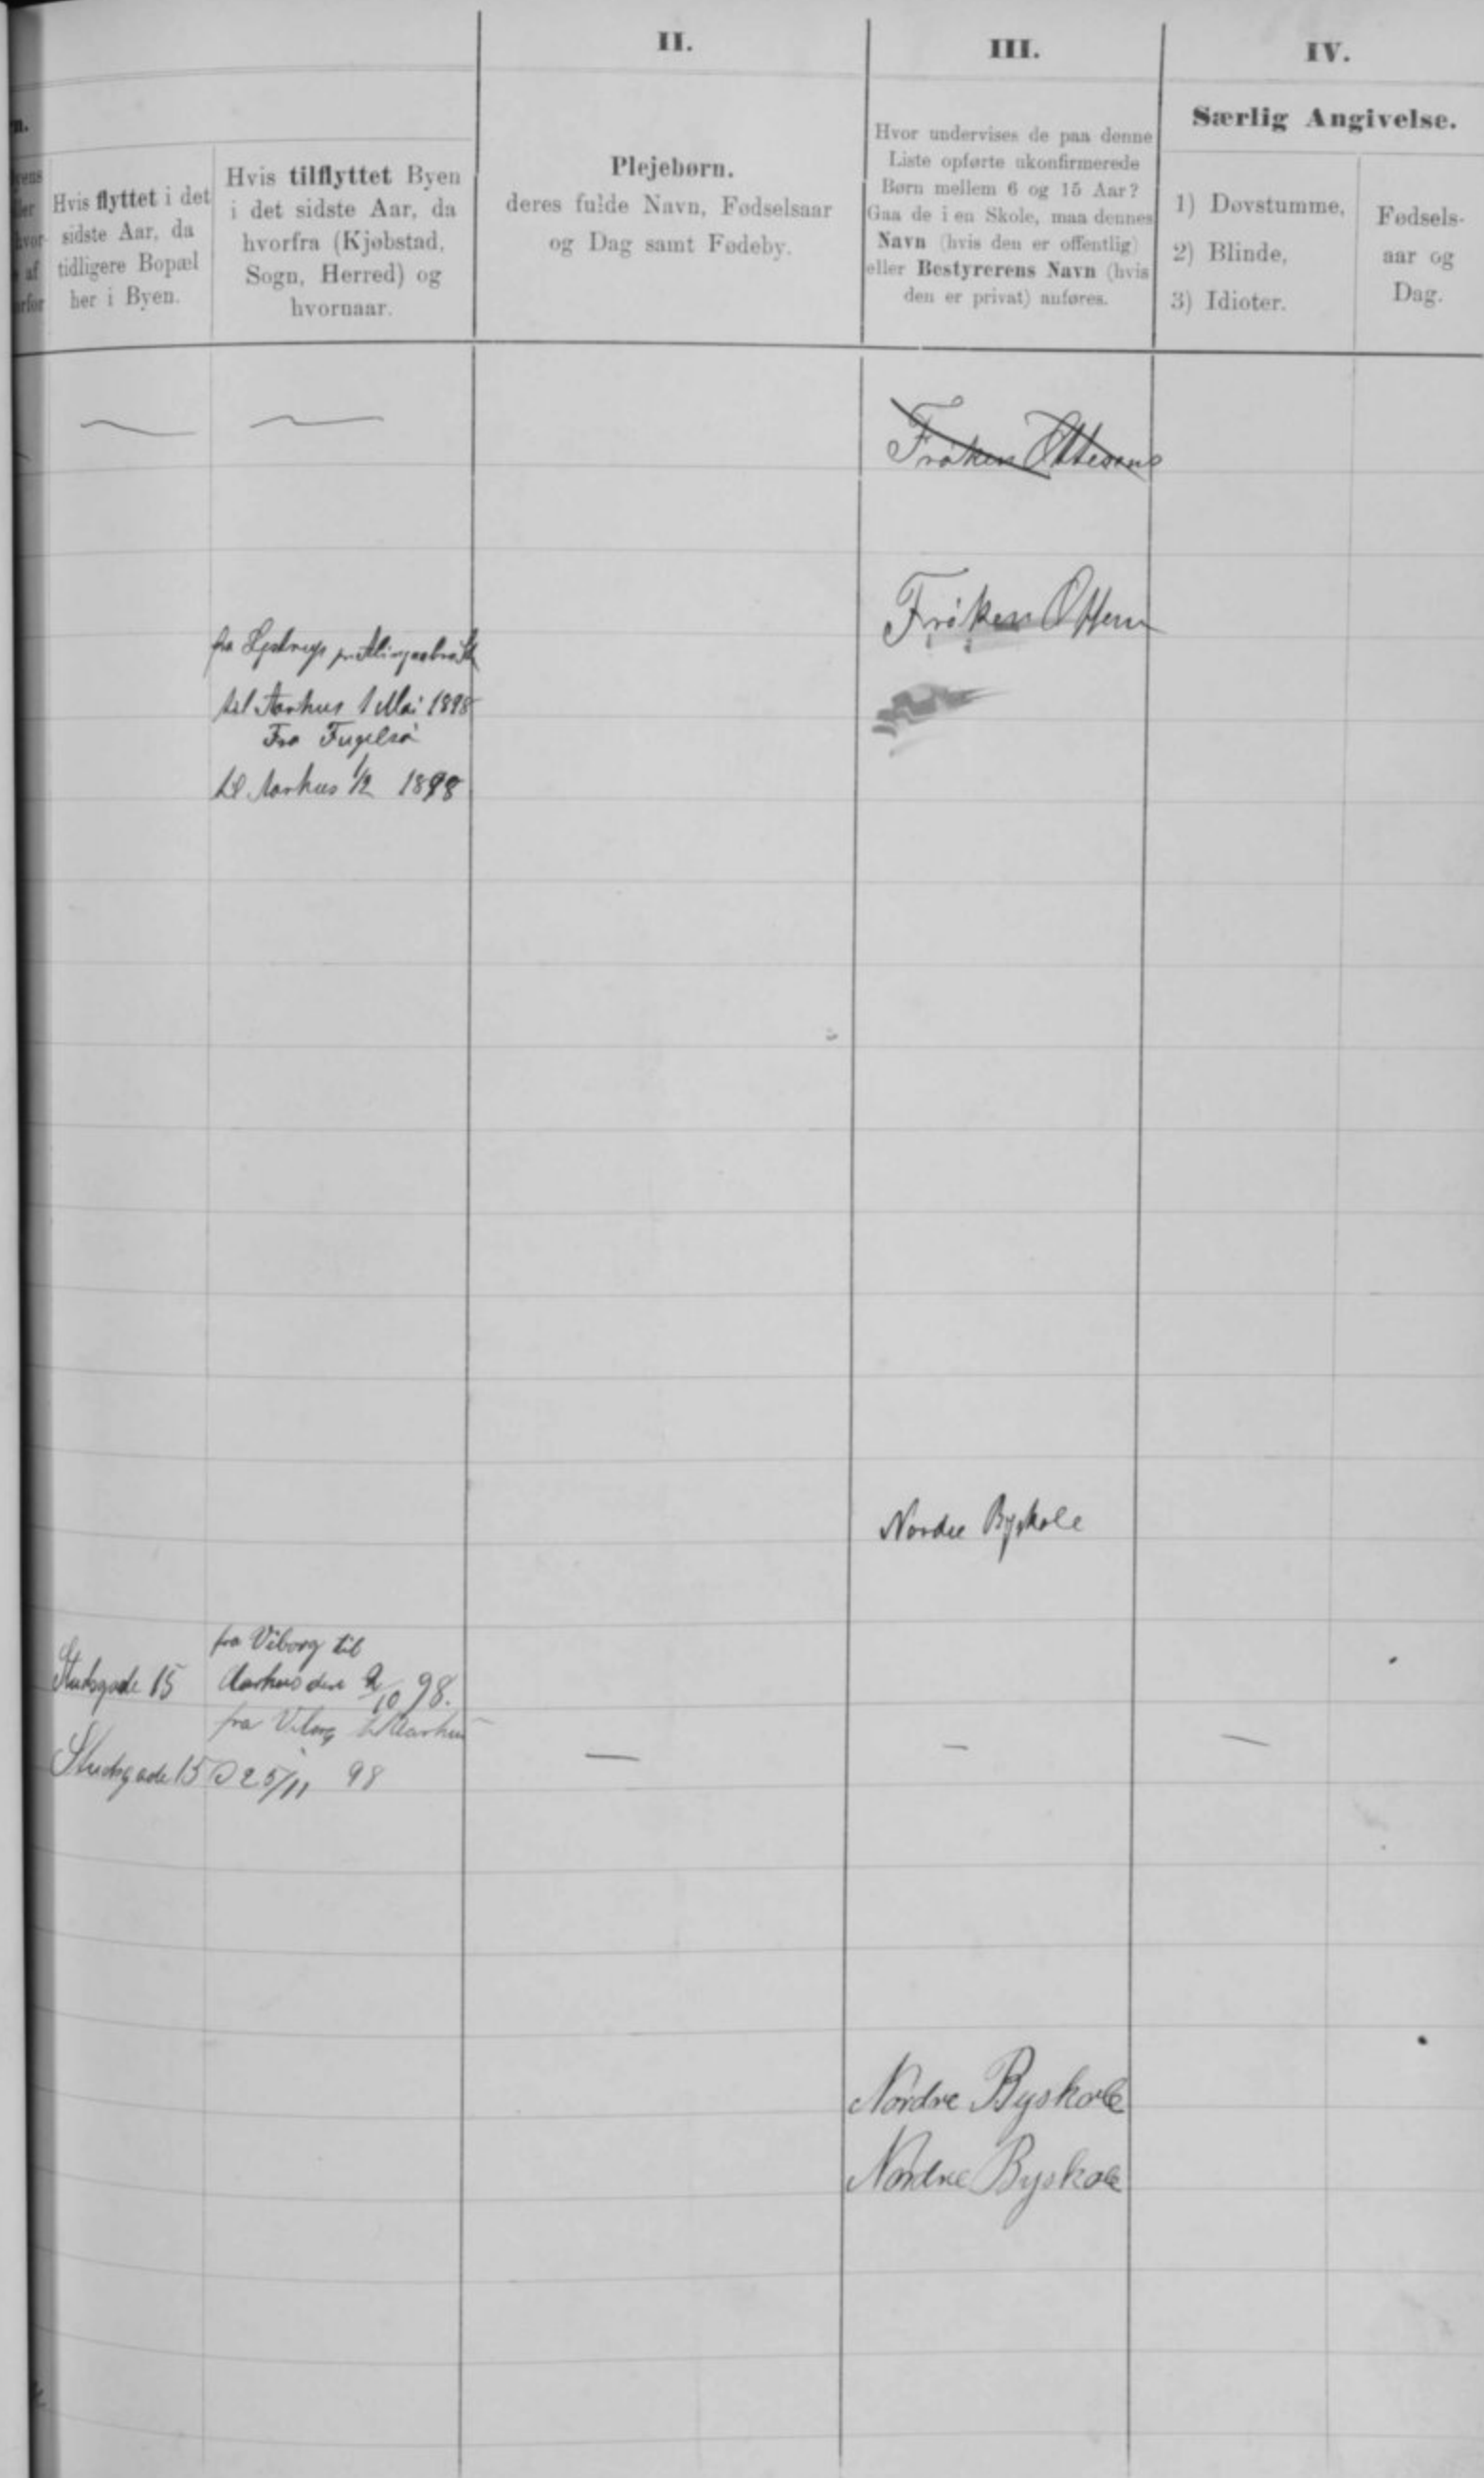 II.
III.
IV.
n.
Særlig Angivelse.
Hvis flyttet i det
sidste Aar, da
tidligere Bopæl
her i Byen.
Hvis tilflyttet Byen
i det sidste Aar, da
hvorfra (Kjøbstad,
Sogn, Herred) og
hvornaar.
Plejebørn.
deres fulde Navn, Fødselsaar
og Dag samt Fødeby.
Hvor undervises de paa denne
Liste opførte ukonfirmerede
Børn mellem 6 og 15 Aar?
Gaa de i en Skole, maa dennes
Navn (hvis den er offentlig)
eller Bestyrerens Navn (hvis
den er privat) anføres.
1) Døvstumme,
2) Blinde,
3) Idioter.
Fødsels-
aar og
Dag.
Frøken Ottesens
Frøken
fra
til Aarhus 1 Mai 1898
Fra Fugelsø
til Aarhus 1/2 1898
Nordre Byskole
fra Viborg til
Studsgade 15 Aarhus den 2/10 98.
fra Viborg til Aarhus
Studsgade 15 D 25/11 98
Nordre Byskole
Nordre Byskole